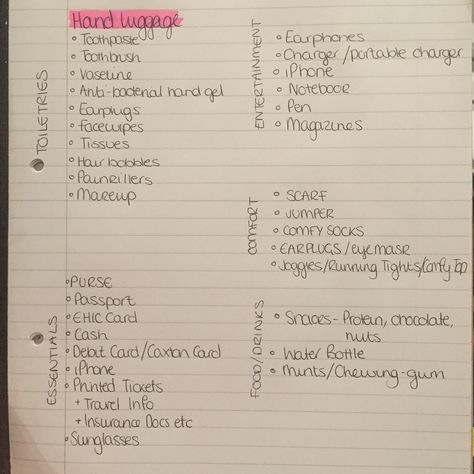 Hand Luggage
TOILETRIES
Toothpaste
Toothbrush
Vaseline
Anti-bacterial hand gel
Earplugs
Facewipes
Tissues
Hair bobbles
Painkillers
Makeup
ENTERTAINMENT
Earphones
Charger/portable charger
iPhone
Notebook
Pen
Magazines
COMFORT
SCARF
JUMPER
COMFY SOCKS
EARPLUGS/eyemask
Joggies/Running Tights/Comfy Top
ESSENTIALS
PURSE
Passport
EHIC Card
Cash
Debit Card/Caxton Card
iPhone
Printed Tickets
+ Travel Info
+ Insurance Docs etc
Sunglasses
FOOD/DRINKS
Snacks - Protein, chocolate,
nuts
Water Bottle
Mints/Chewing-gum